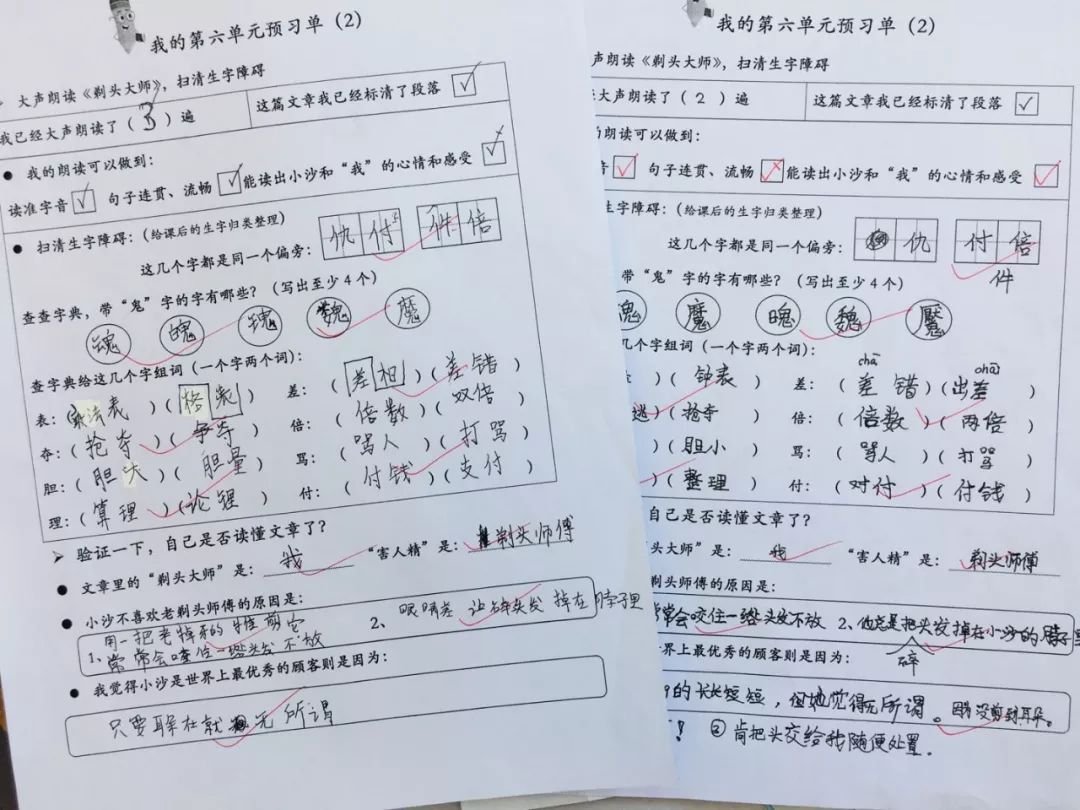 我的第六单元预习单（2）
大声朗读《剃头大师》，扫清生字障碍
我已经大声朗读了（3）遍
这篇文章我已经标清了段落
我的朗读可以做到：
读准字音 句子连贯、流畅 能读出小沙和“我”的心情和感受
扫清生字障碍：（给课后的生字归类整理）
这几个字都是同一个偏旁： 仇 付 件 倍
查查字典，带“鬼”字的字有哪些？（写出至少4个）
魂 魄 魏 魔
查字典给这几个字组词（一个字两个词）：
表：（ 表）（格表） 差：（差相）（差错）
夺：（抢夺）（争夺） 倍：（倍数）（双倍）
胆：（胆 ）（胆量） 骂：（骂人）（打骂）
理：（算理）（论理） 付：（付钱）（支付）
验证一下，自己是否读懂文章了？
文章里的“剃头大师”是： 我 “害人精”是： 剃头师傅
小沙不喜欢老剃头师傅的原因是：
1、用一把老掉牙的 剪 常常会咬住一绺头发不放 2、眼睛差 让碎头发掉在脖子里
我觉得小沙是世界上最优秀的顾客则是因为：
只要 就 无所谓
我的第六单元预习单（2）
声朗读《剃头大师》，扫清生字障碍
大声朗读了（2）遍
这篇文章我已经标清了段落
的朗读可以做到：
音 句子连贯、流畅 能读出小沙和“我”的心情和感受
生字障碍：（给课后的生字归类整理）
这几个字都是同一个偏旁： 仇 付 倍
件
带“鬼”字的字有哪些？（写出至少4个）
魂 魔 魄 魏 魇
几个字组词（一个字两个词）：
chā chāi
）（钟表） 差：（差错）（出差）
）（抢夺） 倍：（倍数）（两倍）
）（胆小） 骂：（骂人）（打骂）
）（整理） 付：（对付）（付钱）
自己是否读懂文章了？
头大师”是： 我 “害人精”是： 剃头师傅
剃头师傅的原因是：
常会咬住一绺头发不放 2、他总是把头发掉在小沙的脖子里
碎
界上最优秀的顾客则是因为：
的长长短短，但他觉得无所谓。 没剪到耳朵。
！ ②肯把头交给我随便处置。